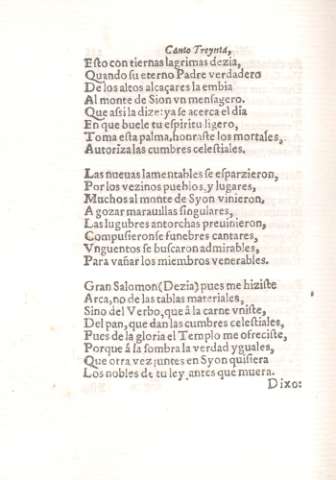 Canto Treynta,
Esto con tiernas lagrimas dezia,
Quando su eterno Padre verdadero
De los altos alcaçares la embia
Al monte de Sion vn mensagero.
Que assi la dize: ya se acerca el dia
En que buele tu espiritu ligero,
Toma esta palma, honraste los mortales,
Autoriza las cumbres celestiales.

Las nueuas lamentables se esparzieron,
Por los vezinos pueblos, y lugares,
Muchos al monte de Syon vinieron,
A gozar marauillas singulares,
Las lugubres antorchas preuinieron,
Compusieronse funebres cantares,
Vnguentos se buscaron admirables,
Para vañar los miembros venerables.

Gran Salomon (Dezia) pues me hiziste
Arca, no de las tablas materiales,
Sino del Verbo, que â la carne vniste,
Del pan, que dan las cumbres celestiales,
Pues de la gloria el Templo me ofreciste,
Porque â la sombra la verdad yguales,
Que otra vez juntes en Syon quisiera
Los nobles de tu ley, antes que muera.
Dixo: